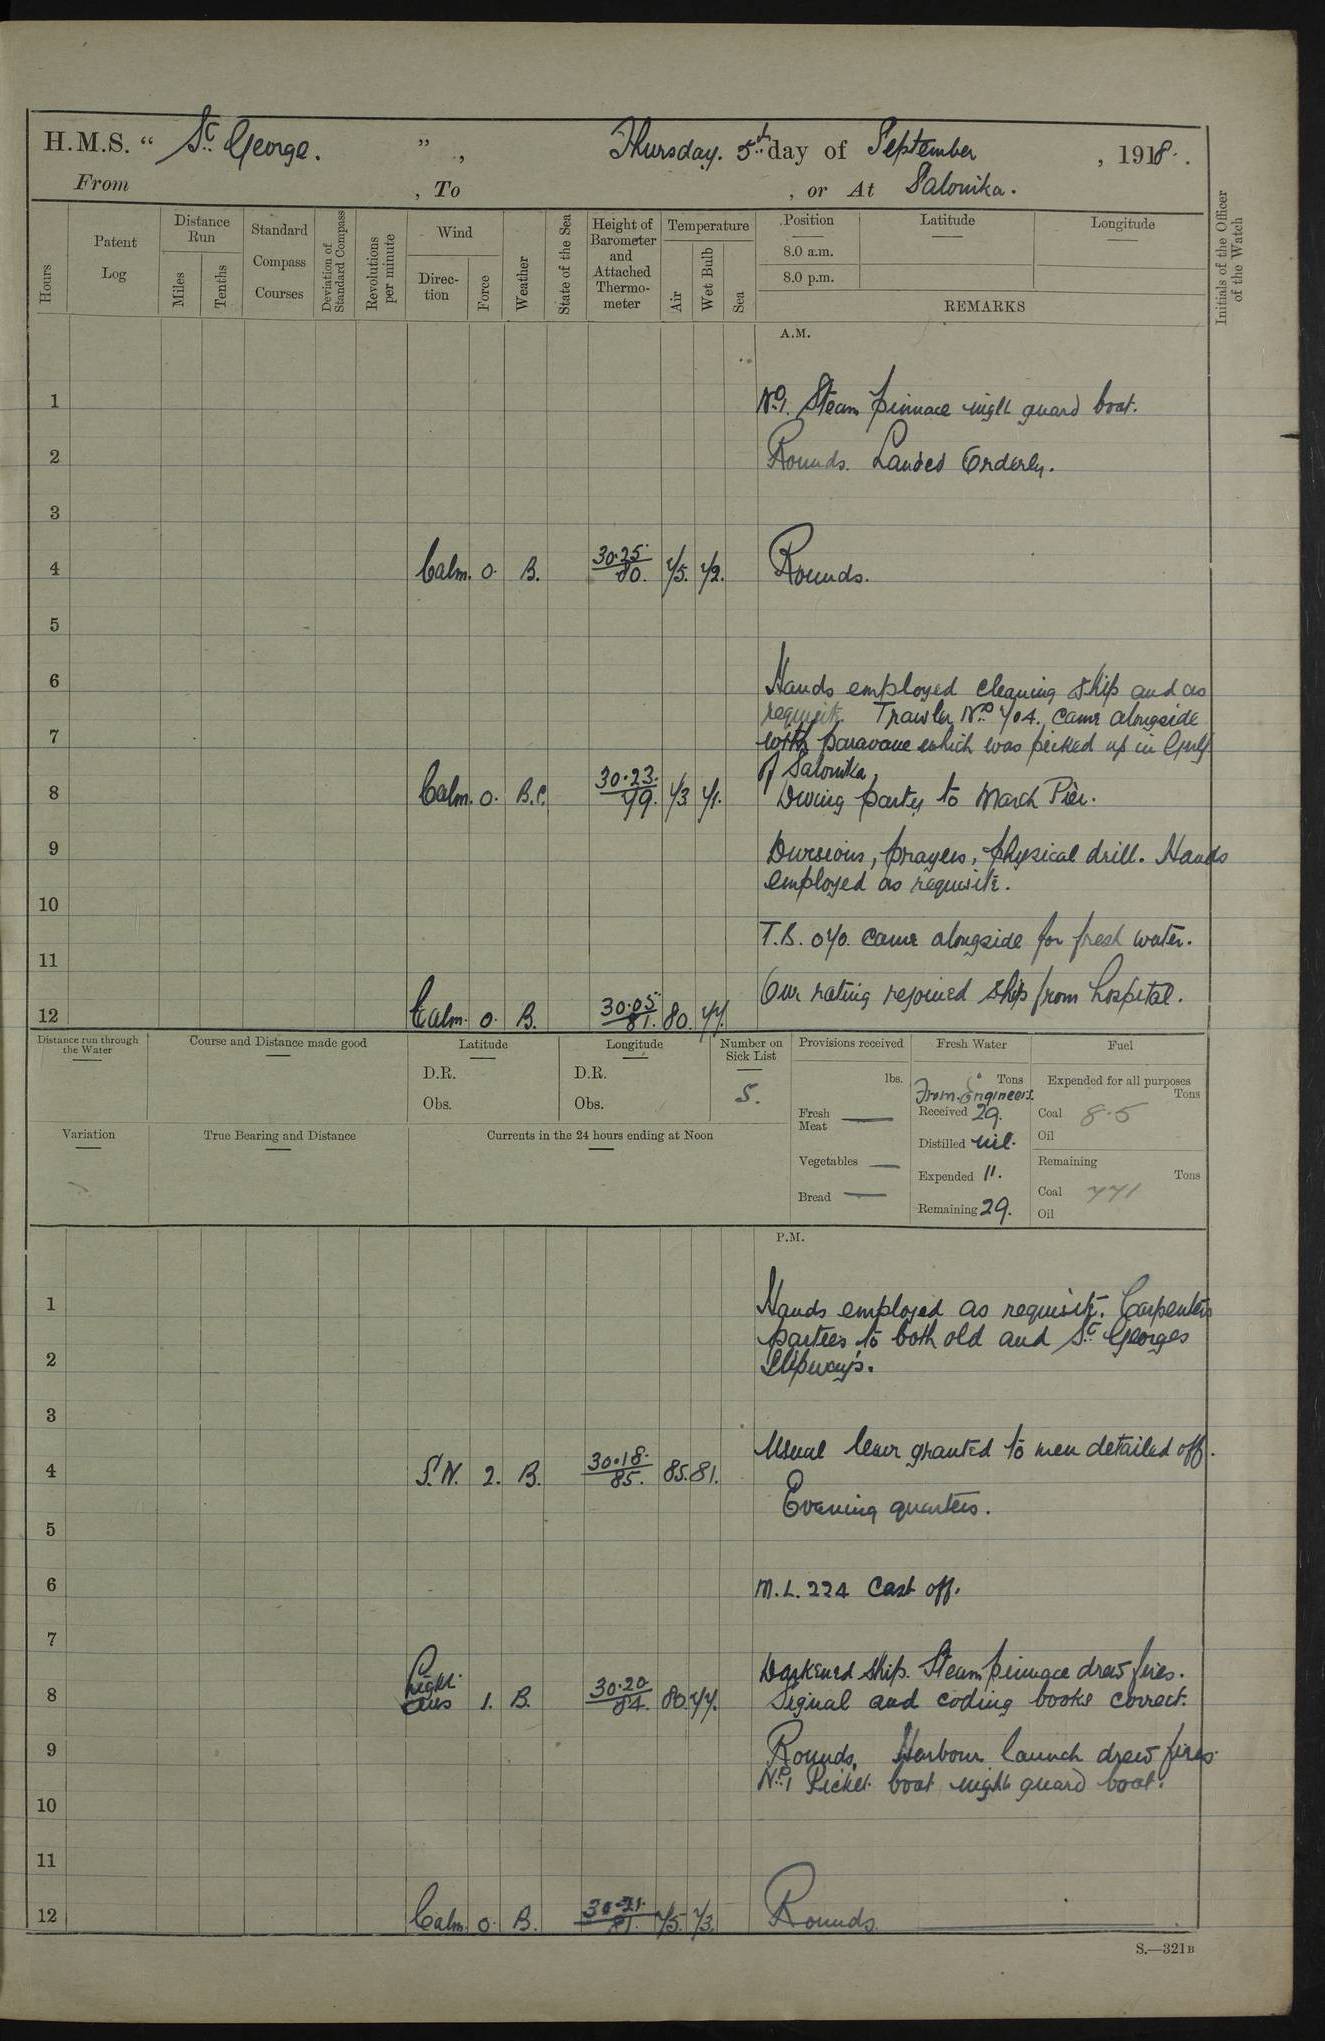 H.M.S. " St George. ", Thursday. 5th day of September, 1918.
From , To , or At Salonika.
Hours
Patent Log
Distance Run
Miles
Tenths
Standard Compass Courses
Deviation of Standard Compass
Revolutions per minute
Wind
Direction
Force
Weather
State of the Sea
Height of Barometer and Attached Thermometer
Temperature
Air
Wet Bulb
Sea
Position
Latitude
Longitude
8.0 a.m.
8.0 p.m.
REMARKS
Initials of the Officer of the Watch
A.M.
1 No1. Steam pinnace night guard boat.
2 Rounds. Landed Orderly.
3
4 Calm. 0. B. 30.25. 80. 75. 72. Rounds.
5
6 Hands employed cleaning ship and as
requisite. Trawler No 704. came alongside
7 with paravane which was picked up in Gulf
of Salonika,
8 Calm. 0. B.C. 30.23. 79. 73 71. Diving party to March Pier.
9 Divisions, prayers, physical drill. Hands
employed as requisite.
10
T.B. 070. came alongside for fresh water.
11
One rating rejoined ship from hospital.
12 Calm. 0. B. 30.05 81. 80. 77.
Distance run through the Water
Course and Distance made good
Latitude
D.R.
Obs.
Longitude
D.R.
Obs.
Number on Sick List
5.
Provisions received
lbs.
Fresh Meat —
Vegetables —
Bread —
Fresh Water
Tons
From Engineers
Received 29.
Distilled nil.
Expended 11.
Remaining 29.
Fuel
Expended for all purposes
Tons
Coal 8.5
Oil
Remaining
Tons
Coal 771
Oil
Variation
True Bearing and Distance
Currents in the 24 hours ending at Noon
P.M.
1 Hands employed as requisite. Carpenters
parties to both old and St Georges
2 Slipways.
3
Usual leave granted to men detailed off.
4 S'N. 2. B. 30.18. 85. 85. 81.
Evening quarters.
5
6 M.L. 224 Cast off.
7
Darkened ship. Steam pinnace drew fires.
8 Light airs 1. B. 30.20 84. 80. 77. Signal and coding books correct.
9 Rounds. Harbour launch drew fires.
No1 Picket boat night guard boat.
10
11
12 Calm. 0. B. 30.21. 81. 75. 73. Rounds.
S.—321B